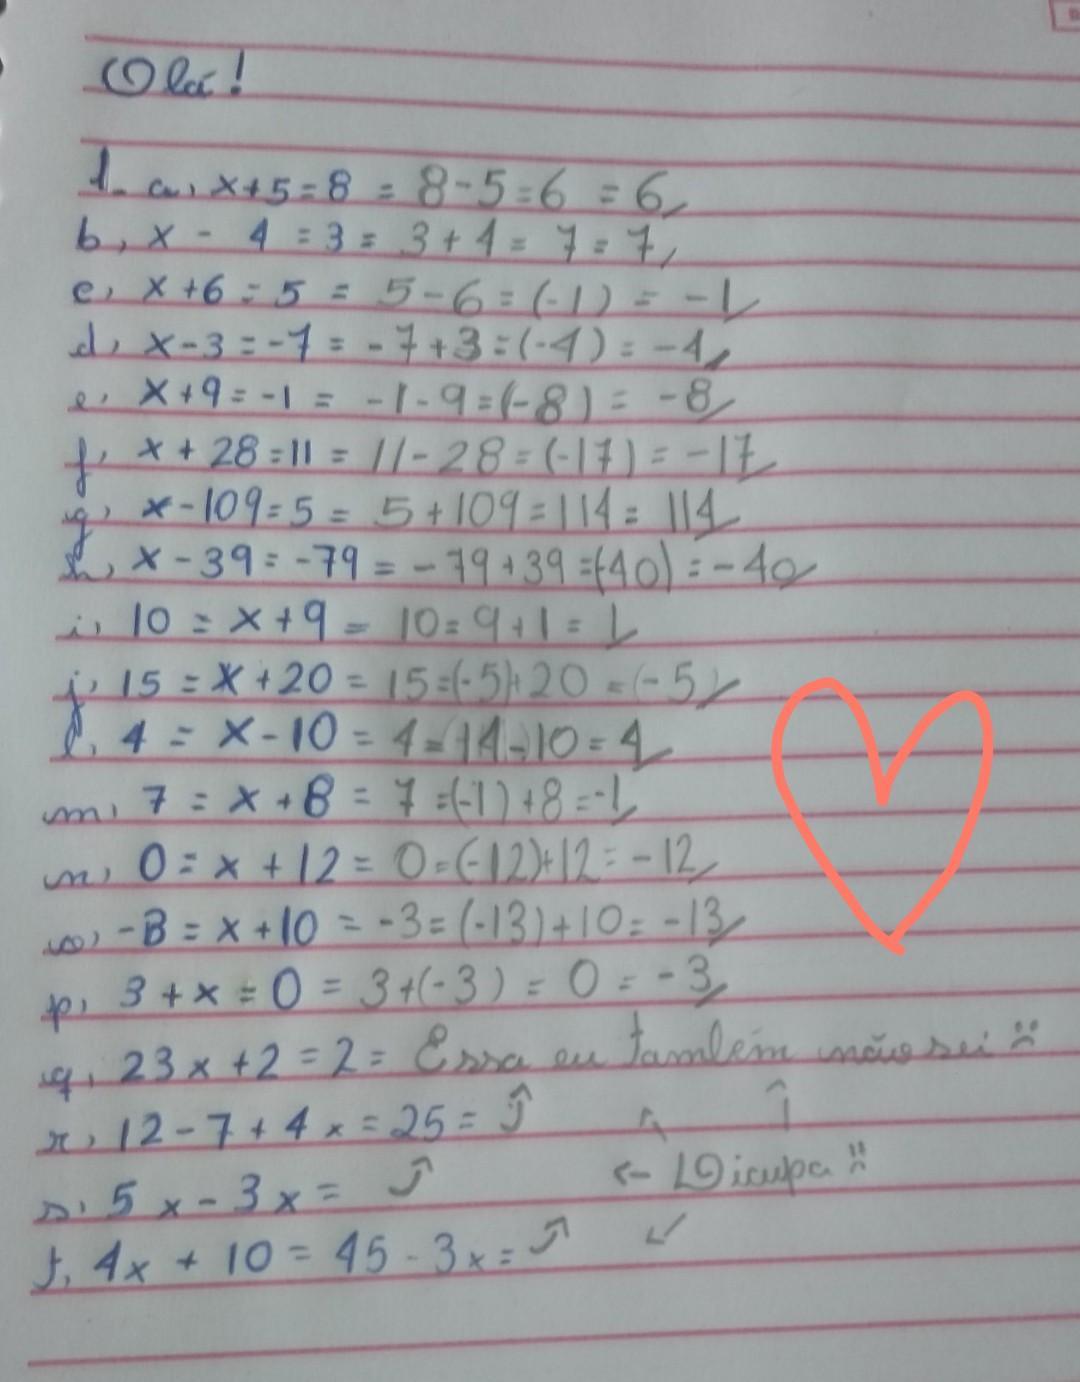 Olá!
1- a, x+5=8 = 8-5=6 = 6
b, x - 4 = 3 = 3+4 = 7 = 7
c, x+6=5 = 5-6=(-1) = -1
d, x-3=-7 = -7+3=(-4) = -4
e, x+9=-1 = -1-9=(-8) = -8
f, x+28=11 = 11-28=(-17) = -17
g, x-109=5 = 5+109=114= 114
h, x-39=-79 = -79+39=(-40) = -40
i, 10 = x+9 = 10=9+1=1
j, 15 = x+20 = 15=(-5)+20 =(-5)
l, 4 = x-10 = 4=14-10=4
m, 7 = x+8 = 7=(-1)+8=-1
n, 0 = x+12= 0=(-12)+12= -12
o, -3 = x+10 = -3=(-13)+10= -13
p, 3+x=0 = 3+(-3) = 0 = -3
q, 23x+2=2= Essa eu também não sei
r, 12-7+4x=25=
s, 5x-3x= ← Dicupa
t, 4x+10=45-3x=